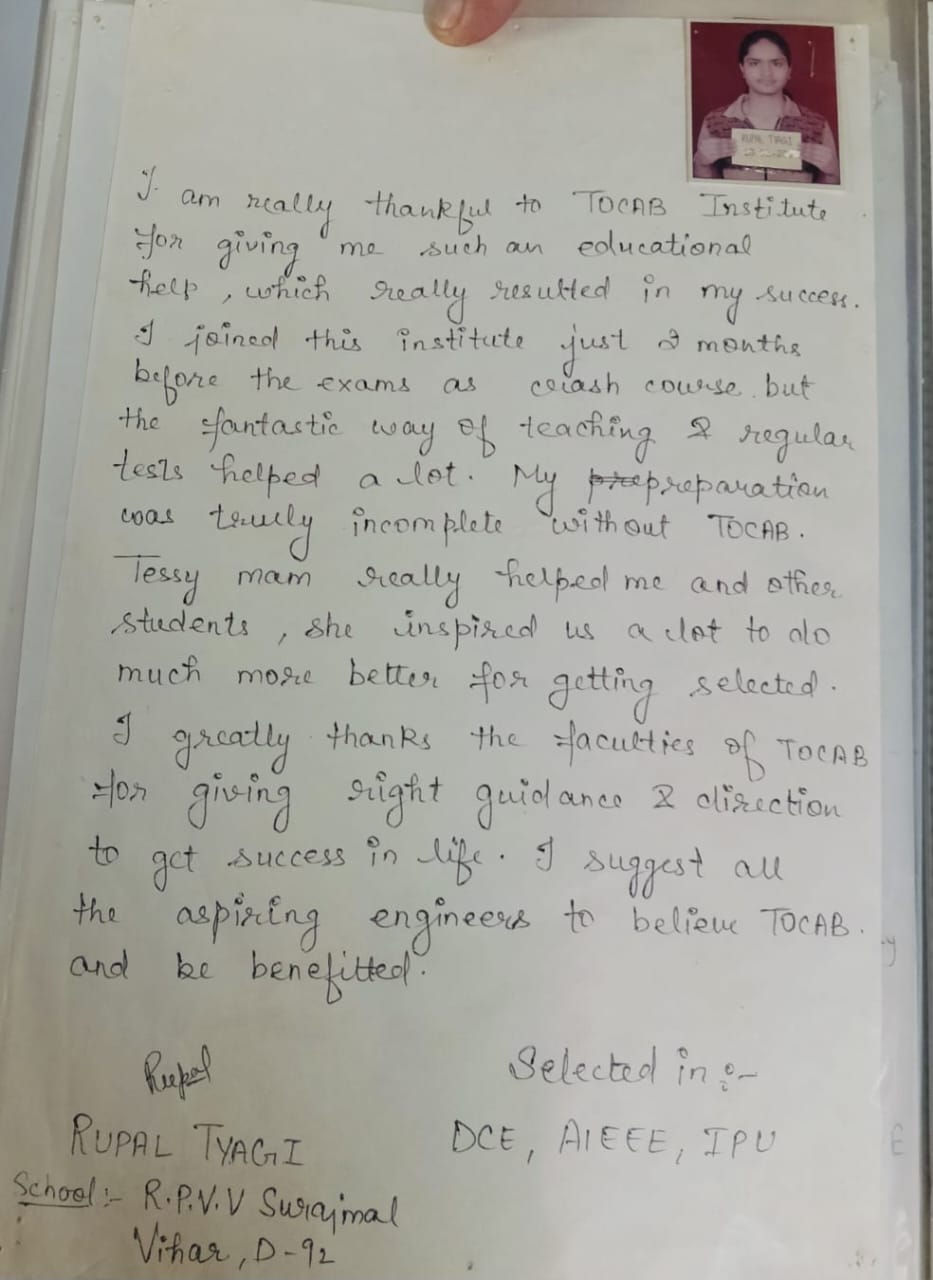 RUPAL TYAGI
I am really thankful to TOCAB Institute
for giving me such an educational
help, which really resulted in my success.
I joined this institute just 2 months
before the exams as crash course but
the fantastic way of teaching & regular
tests helped a lot. My prepreparation
was truely incomplete without TOCAB.
Tessy mam really helped me and other
students, she inspired us a lot to do
much more better for getting selected.
I greatly thanks the faculties of TOCAB
for giving right guidance & direction
to get success in life. I suggest all
the aspiring engineers to believe TOCAB.
and be benefitted.
Rupal
Selected in :-
RUPAL TYAGI
DCE, AIEEE, IPU
School :- R.P.V.V Surajmal
Vihar, D-92